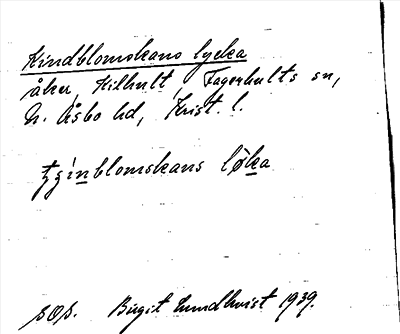 Kindblomskans lycka
åker, Hilhult, Fagerhults sn,
N. Åsbo hd, Krist. l.
tʒinblomskans løka
sop. Birgit Lundkvist 1939.